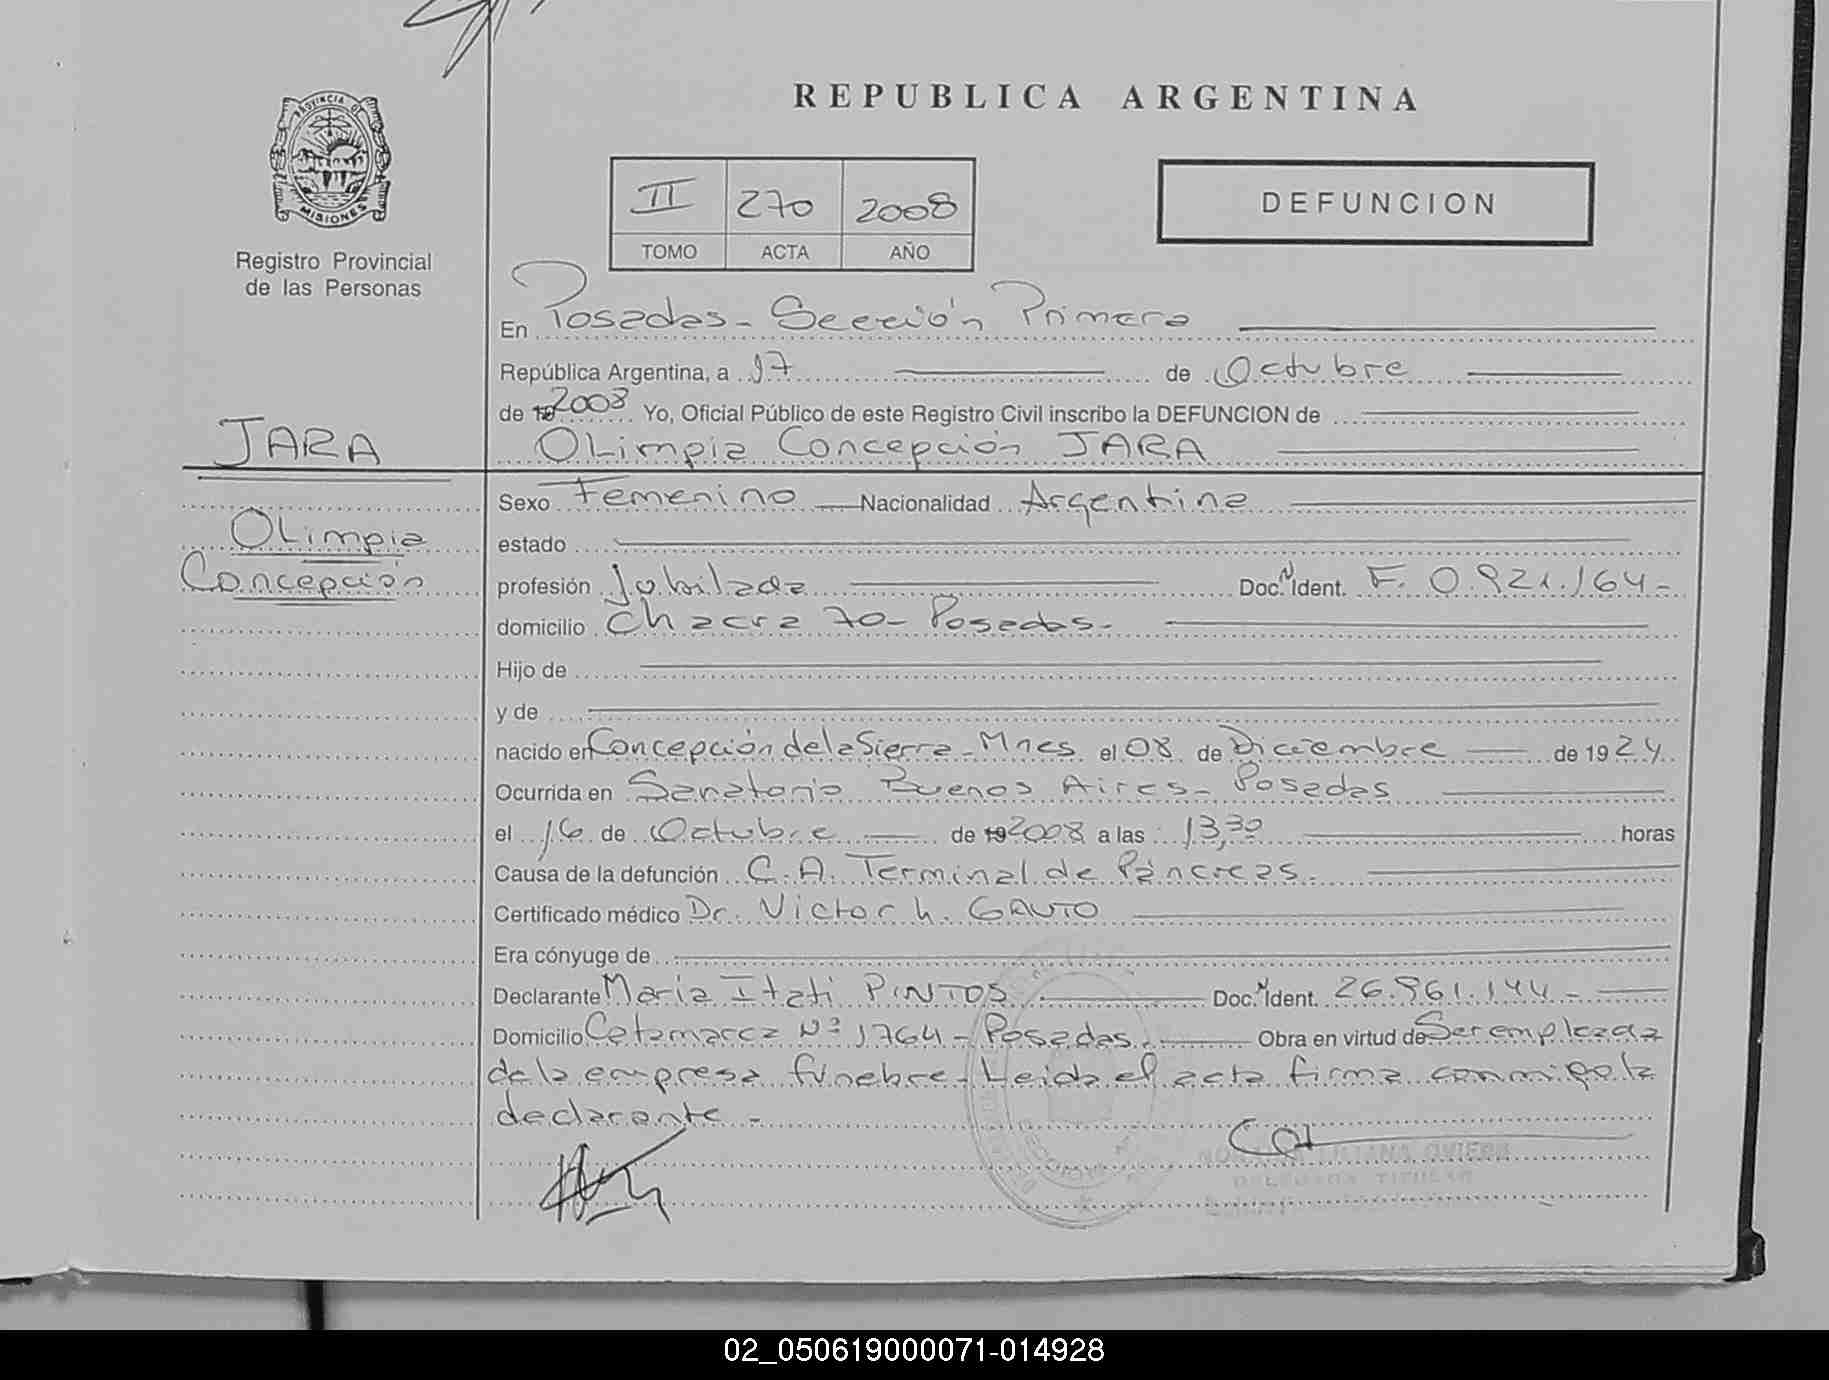 REPUBLICA ARGENTINA
PROVINCIA DE
MISIONES
Registro Provincial
de las Personas
II 270 2008
TOMO ACTA AÑO
DEFUNCION
En Posadas - Sección Primera
República Argentina, a 17 de Octubre
de 19 2008 Yo, Oficial Público de este Registro Civil inscribo la DEFUNCION de
JARA
Olimpia Concepción JARA
Olimpia
Concepción
Sexo Femenino Nacionalidad Argentina
estado
profesión Jubilada Doc. N Ident. F. 0.921.164-
domicilio Chacra 70- Posadas-
Hijo de
y de
nacido en Concepción de la Sierra - Mnes el 08 de Diciembre de 1924
Ocurrida en Sanatorio Buenos Aires - Posadas
el 16 de Octubre de 19 2008 a las 13,30 horas
Causa de la defunción C.A. Terminal de Páncreas.
Certificado médico Dr. Victor h. GAUTO
Era cónyuge de
Declarante Maria Itati PINTOS Doc. N Ident. 26.961.144-
Domicilio Catamarca Nº 1764 - Posadas. Obra en virtud de Ser empleada
de la empresa fúnebre - Leida el acta firma conmigo la
declarante -
LILIANA
TITULAR
02_050619000071-014928